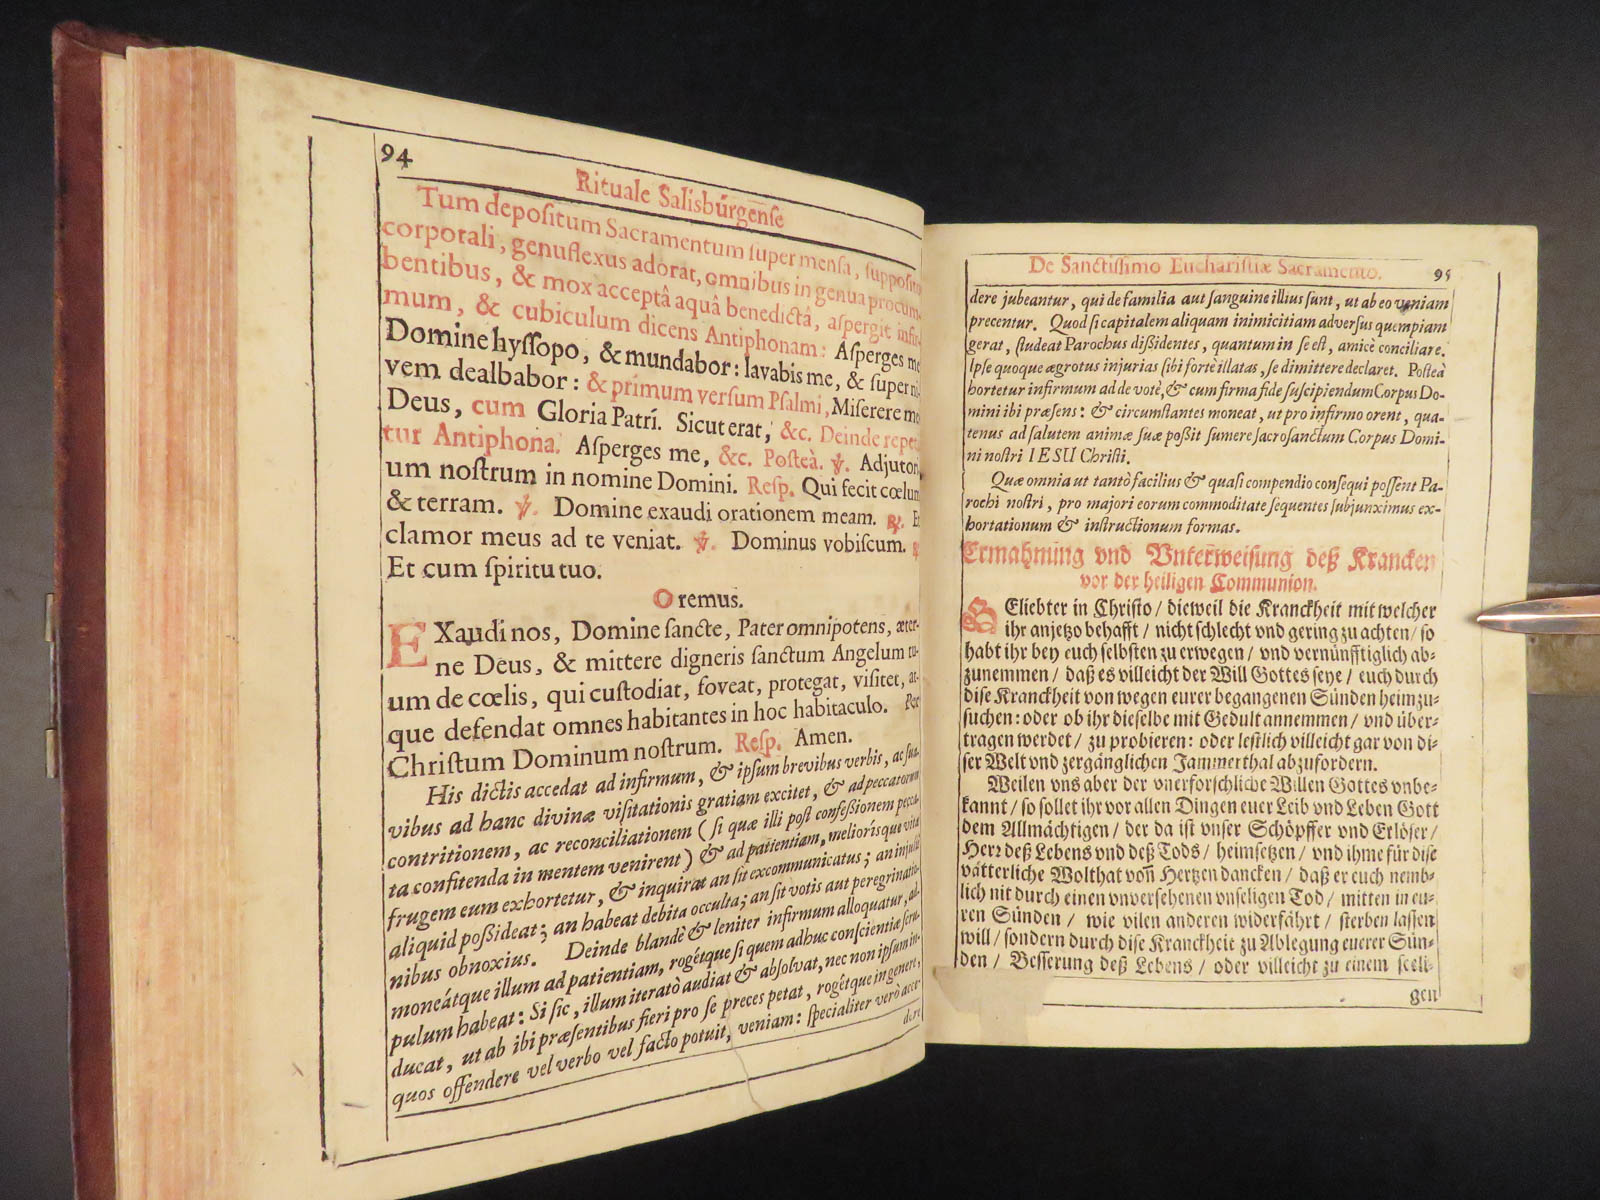 94
Rituale Salisburgense
Tum depositum Sacramentum super mensa, supposito
corporali, genuflexus adorat, omnibus in genua procum-
bentibus, & mox acceptâ aquâ benedictâ, aspergit infir-
mum, & cubiculum dicens Antiphonam: Asperges me
Domine hyssopo, & mundabor: lavabis me, & super ni-
vem dealbabor: & primum versum Psalmi, Miserere mei
Deus, cum Gloria Patri. Sicut erat, &c. Deinde repeti-
tur Antiphona. Asperges me, &c. Posteà. ℣. Adjutori-
um nostrum in nomine Domini. Resp. Qui fecit cœlum
& terram. ℣. Domine exaudi orationem meam. ℟. Et
clamor meus ad te veniat. ℣. Dominus vobiscum. ℟.
Et cum spiritu tuo.
Oremus.
EXaudi nos, Domine sancte, Pater omnipotens, æter-
ne Deus, & mittere digneris sanctum Angelum tu-
um de cœlis, qui custodiat, foveat, protegat, visitet, at-
que defendat omnes habitantes in hoc habitaculo. Per
Christum Dominum nostrum. Resp. Amen.
His dictis accedat ad infirmum, & ipsum brevibus verbis, ac sua-
vibus ad hanc divinæ visitationis gratiam excitet, & ad peccatorum
contritionem, ac reconciliationem (si quæ illi post confeßionem pecca-
ta confitenda in mentem venirent) & ad patientiam, meliorísque vitæ
frugem eum exhortetur, & inquirat an sit excommunicatus; an injustè
aliquid poßideat; an habeat debita occulta; an sit votis aut peregrinatio-
nibus obnoxius. Deinde blandè & leniter infirmum alloquatur, ad-
moneátque illum ad patientiam, rogétque si quem adhuc conscientiæ scru-
pulum habeat: Si sic, illum iteratò audiat & absolvat, nec non ipsum in-
ducat, ut ab ibi præsentibus fieri pro se preces petat, rogétque in genere,
quos offendere vel verbo vel facto potuit, veniam: specialiter verò acce-
dere
De Sanctissimo Eucharistiæ Sacramento. 95
dere jubeantur, qui de familia aut sanguine illius sunt, ut ab eo veniam
precentur. Quod si capitalem aliquam inimicitiam adversus quempiam
gerat, studeat Parochus dißidentes, quantum in se est, amicè conciliare.
Ipse quoque ægrotus injurias sibi fortè illatas, se dimittere declaret. Posteà
hortetur infirmum ad devotè, & cum firma fide suscipiendum Corpus Do-
mini ibi præsens: & circumstantes moneat, ut pro infirmo orent, qua-
tenus ad salutem animæ suæ poßit sumere sacrosanctum Corpus Domi-
ni nostri IESU Christi.
Quæ omnia ut tantò facilius & quasi compendio consequi possent Pa-
rochi nostri, pro majori eorum commoditate sequentes subjunximus ex-
hortationum & instructionum formas.
Ermahnung vnd Vnterweisung deß Krancken
vor der heiligen Communion.
GEliebter in Christo / dieweil die Kranckheit mit welcher
ihr anjetzo behafft / nicht schlecht vnd gering zu achten / so
habt ihr bey euch selbsten zu erwegen / vnd vernünfftiglich ab-
zunemmen / daß es villeicht der Will Gottes seye / euch durch
dise Kranckheit von wegen eurer begangenen Sünden heimzu-
suchen: oder ob ihr dieselbe mit Gedult annemmen / vnd über-
tragen werdet / zu probieren: oder lestlich villeicht gar von di-
ser Welt vnd zergänglichen Jammerthal abzufordern.
Weilen vns aber der vnerforschliche Willen Gottes vnbe-
kannt / so sollet ihr vor allen Dingen euer Leib vnd Leben Gott
dem Allmächtigen / der da ist vnser Schöpffer vnd Erlöser /
Herr deß Lebens vnd deß Tods / heimsetzen / vnd ihme für dise
vätterliche Wolthat von Hertzen dancken / daß er euch nemb-
lich nit durch einen vnversehenen vnseligen Tod / mitten in eu-
ren Sünden / wie vilen anderen widerfährt / sterben lassen
will / sondern durch dise Kranckheit zu Ablegung euerer Sün-
den / Besserung deß Lebens / oder villeicht zu einem seeli-
gen